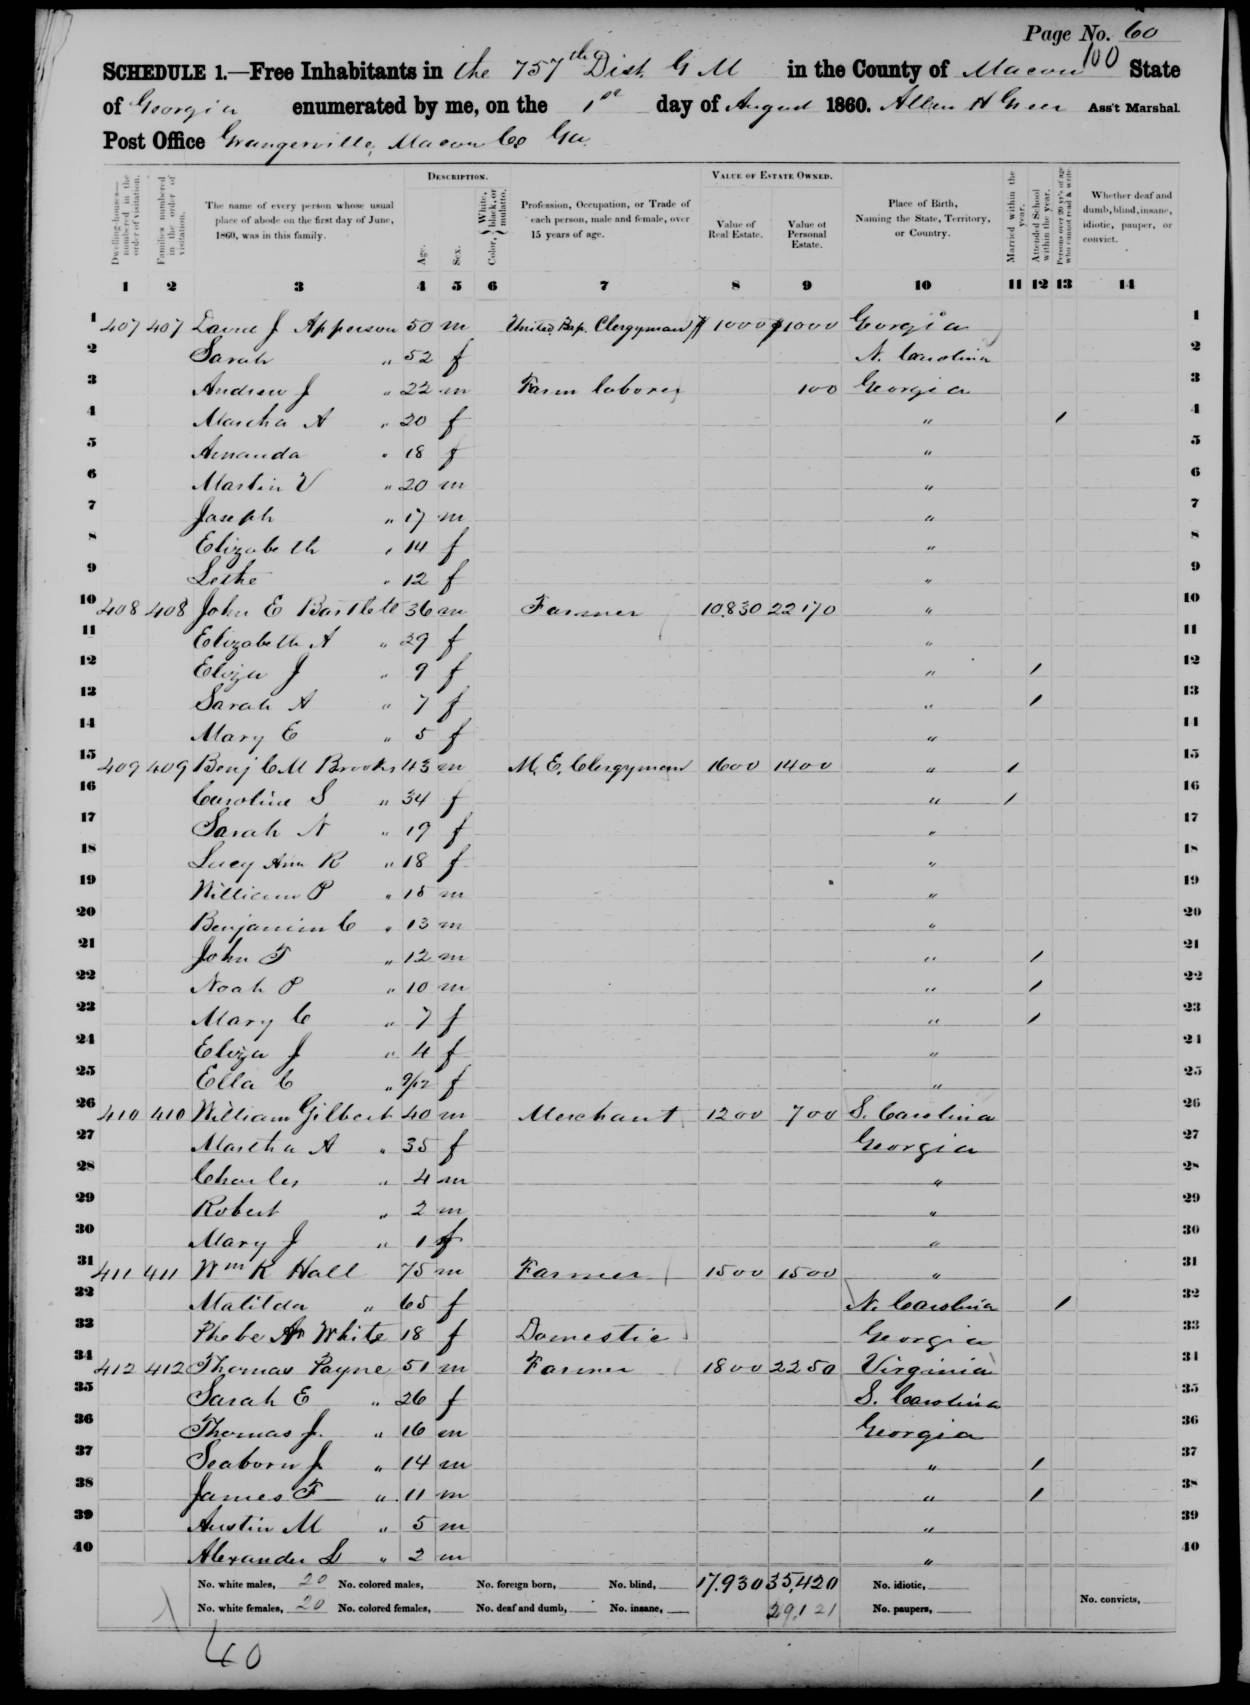 Page No. 60
100
SCHEDULE 1.—Free Inhabitants in the 757th Dist G M in the County of Macon State
of Georgia enumerated by me, on the 1st day of August 1860. Allen H Greer Ass't Marshal.
Post Office Grangerville, Macon Co Ga.
DESCRIPTION. VALUE OF ESTATE OWNED.
Dwelling-houses—numbered in the order of visitation.
Families numbered in the order of visitation.
The name of every person whose usual place of abode on the first day of June, 1860, was in this family.
Age.
Sex.
Color, White, black, or mulatto.
Profession, Occupation, or Trade of each person, male and female, over 15 years of age.
Value of Real Estate.
Value of Personal Estate.
Place of Birth, Naming the State, Territory, or Country.
Married within the year.
Attended School within the year.
Persons over 20 yr's of age who cannot read & write
Whether deaf and dumb, blind, insane, idiotic, pauper, or convict.
1 2 3 4 5 6 7 8 9 10 11 12 13 14
1 407 407 David J Apperson 50 m United Bap. Clergyman $ 1000 $1000 Georgia 1
2 Sarah " 52 f N. Carolina 2
3 Andrew J " 22 m Farm laborer 100 Georgia 3
4 Martha A " 20 f " / 4
5 Amanda " 18 f " 5
6 Martin V " 20 m " 6
7 Joseph " 17 m " 7
8 Elizabeth " 14 f " 8
9 Lethe " 12 f " 9
10 408 408 John E Bartlett 36 m Farmer 10830 22170 " 10
11 Elizabeth A " 29 f " 11
12 Eliza J " 9 f " / 12
13 Sarah A " 7 f " / 13
14 Mary E " 5 f " 14
15 409 409 Benj C M Brooks 43 m M. E. Clergyman 1600 1400 " / 15
16 Caroline S " 34 f " / 16
17 Sarah N " 19 f " 17
18 Lucy Ann R " 18 f " 18
19 William P " 15 m " 19
20 Benjamin C " 13 m " 20
21 John T " 12 m " / 21
22 Noah P " 10 m " / 22
23 Mary C " 7 f " / 23
24 Eliza J " 4 f " 24
25 Ella C " 9/12 f " 25
26 410 410 William Gilbert 40 m Merchant 1200 700 S. Carolina 26
27 Martha A " 35 f Georgia 27
28 Charles " 4 m " 28
29 Robert " 2 m " 29
30 Mary J " 1 f " 30
31 411 411 Wm K Hall 75 m Farmer 1500 1500 " 31
32 Matilda " 65 f N. Carolina / 32
33 Phebe A White 18 f Domestic Georgia 33
34 412 412 Thomas Payne 51 m Farmer 1800 2250 Virginia 34
35 Sarah E " 26 f S. Carolina 35
36 Thomas J. " 16 m Georgia 36
37 Seaborn J " 14 m " / 37
38 James F " 11 m " / 38
39 Austin M " 5 m " 39
40 Alexander L " 2 m " 40
No. white males, 20 No. colored males, No. foreign born, No. blind, 17.930 35,420 No. idiotic,
No. white females, 20 No. colored females, No. deaf and dumb, No. insane, 29,121 No. paupers, No. convicts,
40